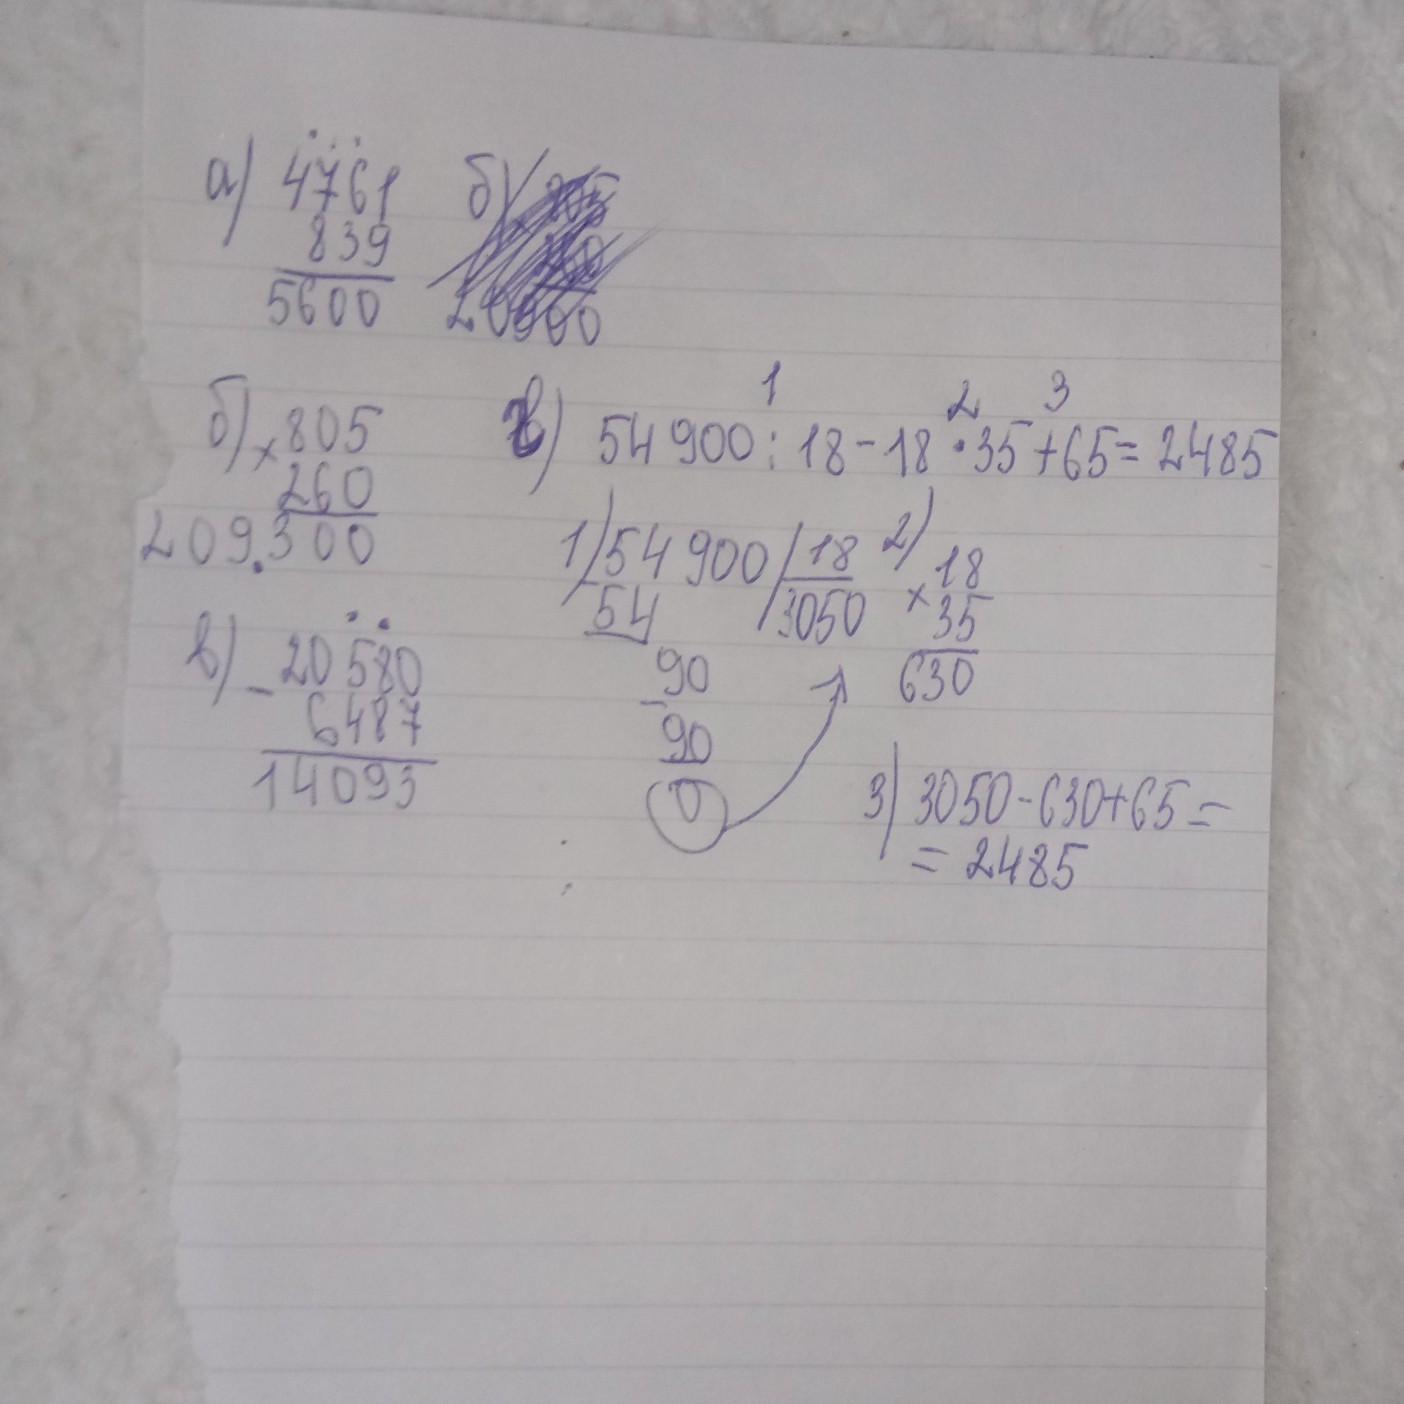 а) 4761
839
5600
б)
б) × 805
260
209.300
в) - 20580
6487
14093
1 2 3
в) 54 900 : 18 - 18 · 35 + 65 = 2485
1) 54 900 / 18
54 3050
90
- 90
0
2) × 18
35
630
3) 3050 - 630 + 65 =
= 2485